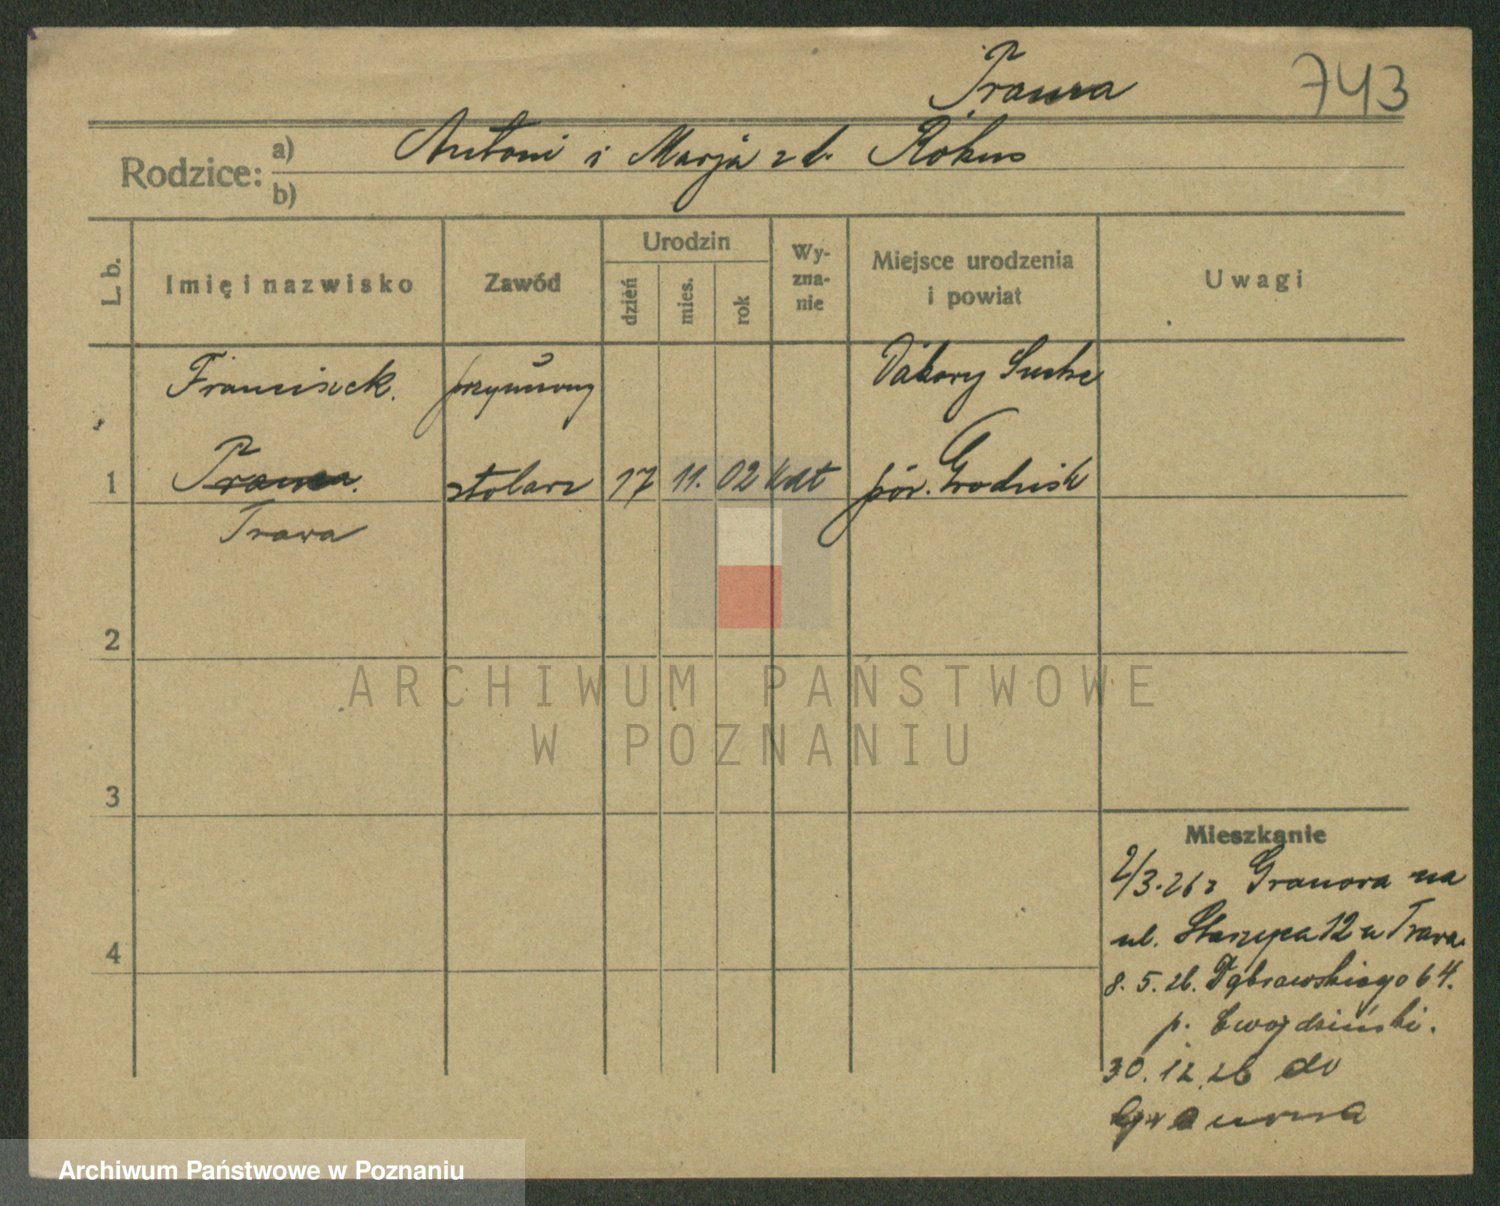 Trawa
743
Rodzice:
a) Antoni i Marja z d. Rókus
b)
L. b.
Imię i nazwisko
Zawód
Urodzin
dzień
mies.
rok
Wy-
zna-
nie
Miejsce urodzenia
i powiat
Uwagi
Franciszek
Suche
1
stolarz
17
11.
02
pow. Grodzisk
Trawa
2
3
4
ARCHIWUM PAŃSTWOWE
W POZNANIU
Mieszkanie
2/3.26 z Granowa na
ul. Staszyca 12 u Trawa
8. 5. 26. Dąbrowskiego 64.
p. Ewojdziński.
30. 12. 26 do
Granowa
Archiwum Państwowe w Poznaniu